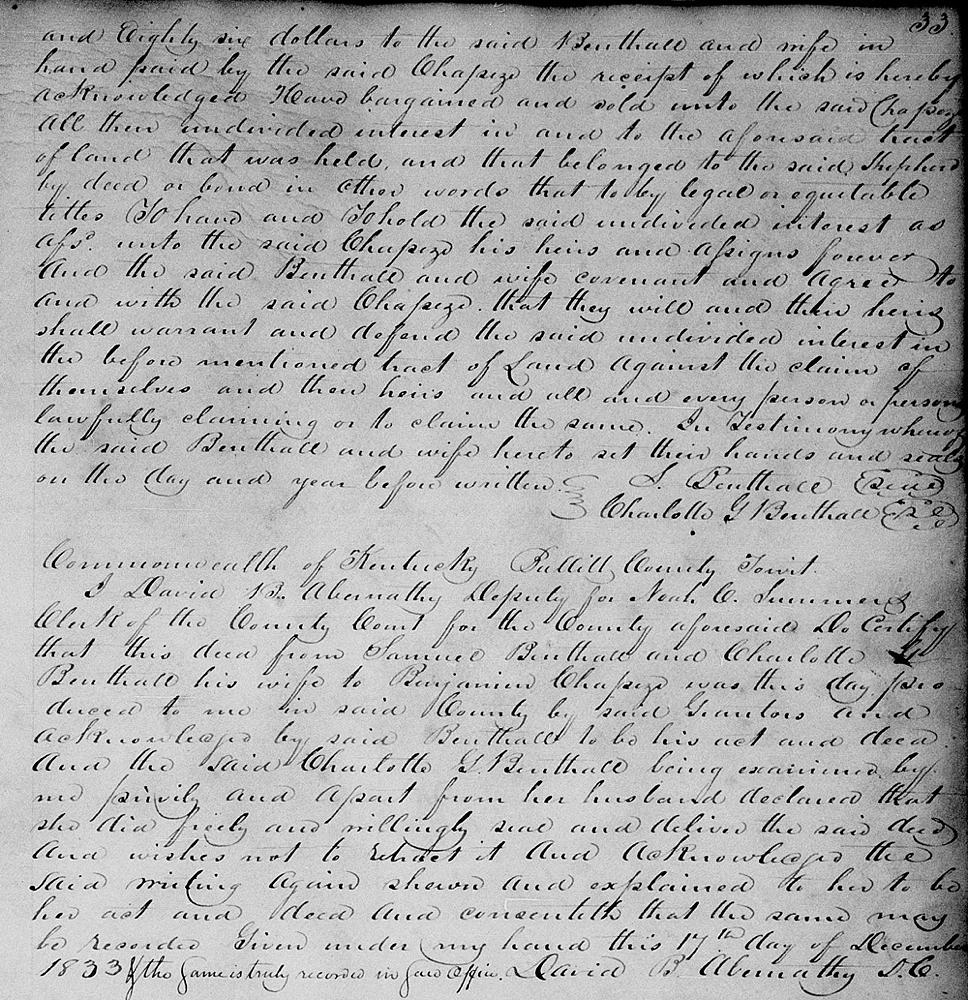 33
and Eighty six dollars to the said Benthall and wife in
hand paid by the said Chapeze the receipt of which is hereby
acknowledged Have bargained and sold unto the said Chapeze
All their undivided interest in and to the aforesaid tract
of land that was held, and that belonged to the said Shepherd
by deed or bond in other words that to by legal or equitable
titles To have and To hold the said undivided interest as
afsd. unto the said Chapeze his heirs and assigns forever
And the said Benthall and wife covenant and agree to
and with the said Chapeze that they will and their heirs
shall warrant and defend the said undivided interest in
the before mentioned tract of Land against the claim of
themselves and their heirs and all and every person or persons
lawfully claiming or to claim the same. In Testimony whereof
the said Benthall and wife hereto set their hands and seals
on the day and year before written. S. Benthall (seal)
Charlotte G Benthall (seal)
Commonwealth of Kentucky Bullitt County Towit.
I David B. Abernathy Deputy for Noah C. Summers
Clerk of the County Court for the County aforesaid Do Certify
that this deed from Samuel Benthall and Charlotte G
Benthall his wife to Benjamin Chapeze was this day pro
duced to me in said County by said Grantors and
acknowledged by said Benthall to be his act and deed
And the said Charlotte G. Benthall being examined by
me privily and apart from her husband declared that
she did freely and willingly seal and deliver the said deed
And wishes not to retract it And acknowledged the
said writing again shewn and explained to her to be
her act and deed and consenteth that the same may
be recorded Given under my hand this 17th day of December
1833 & the same is truly recorded in said office. David B. Abernathy D.C.